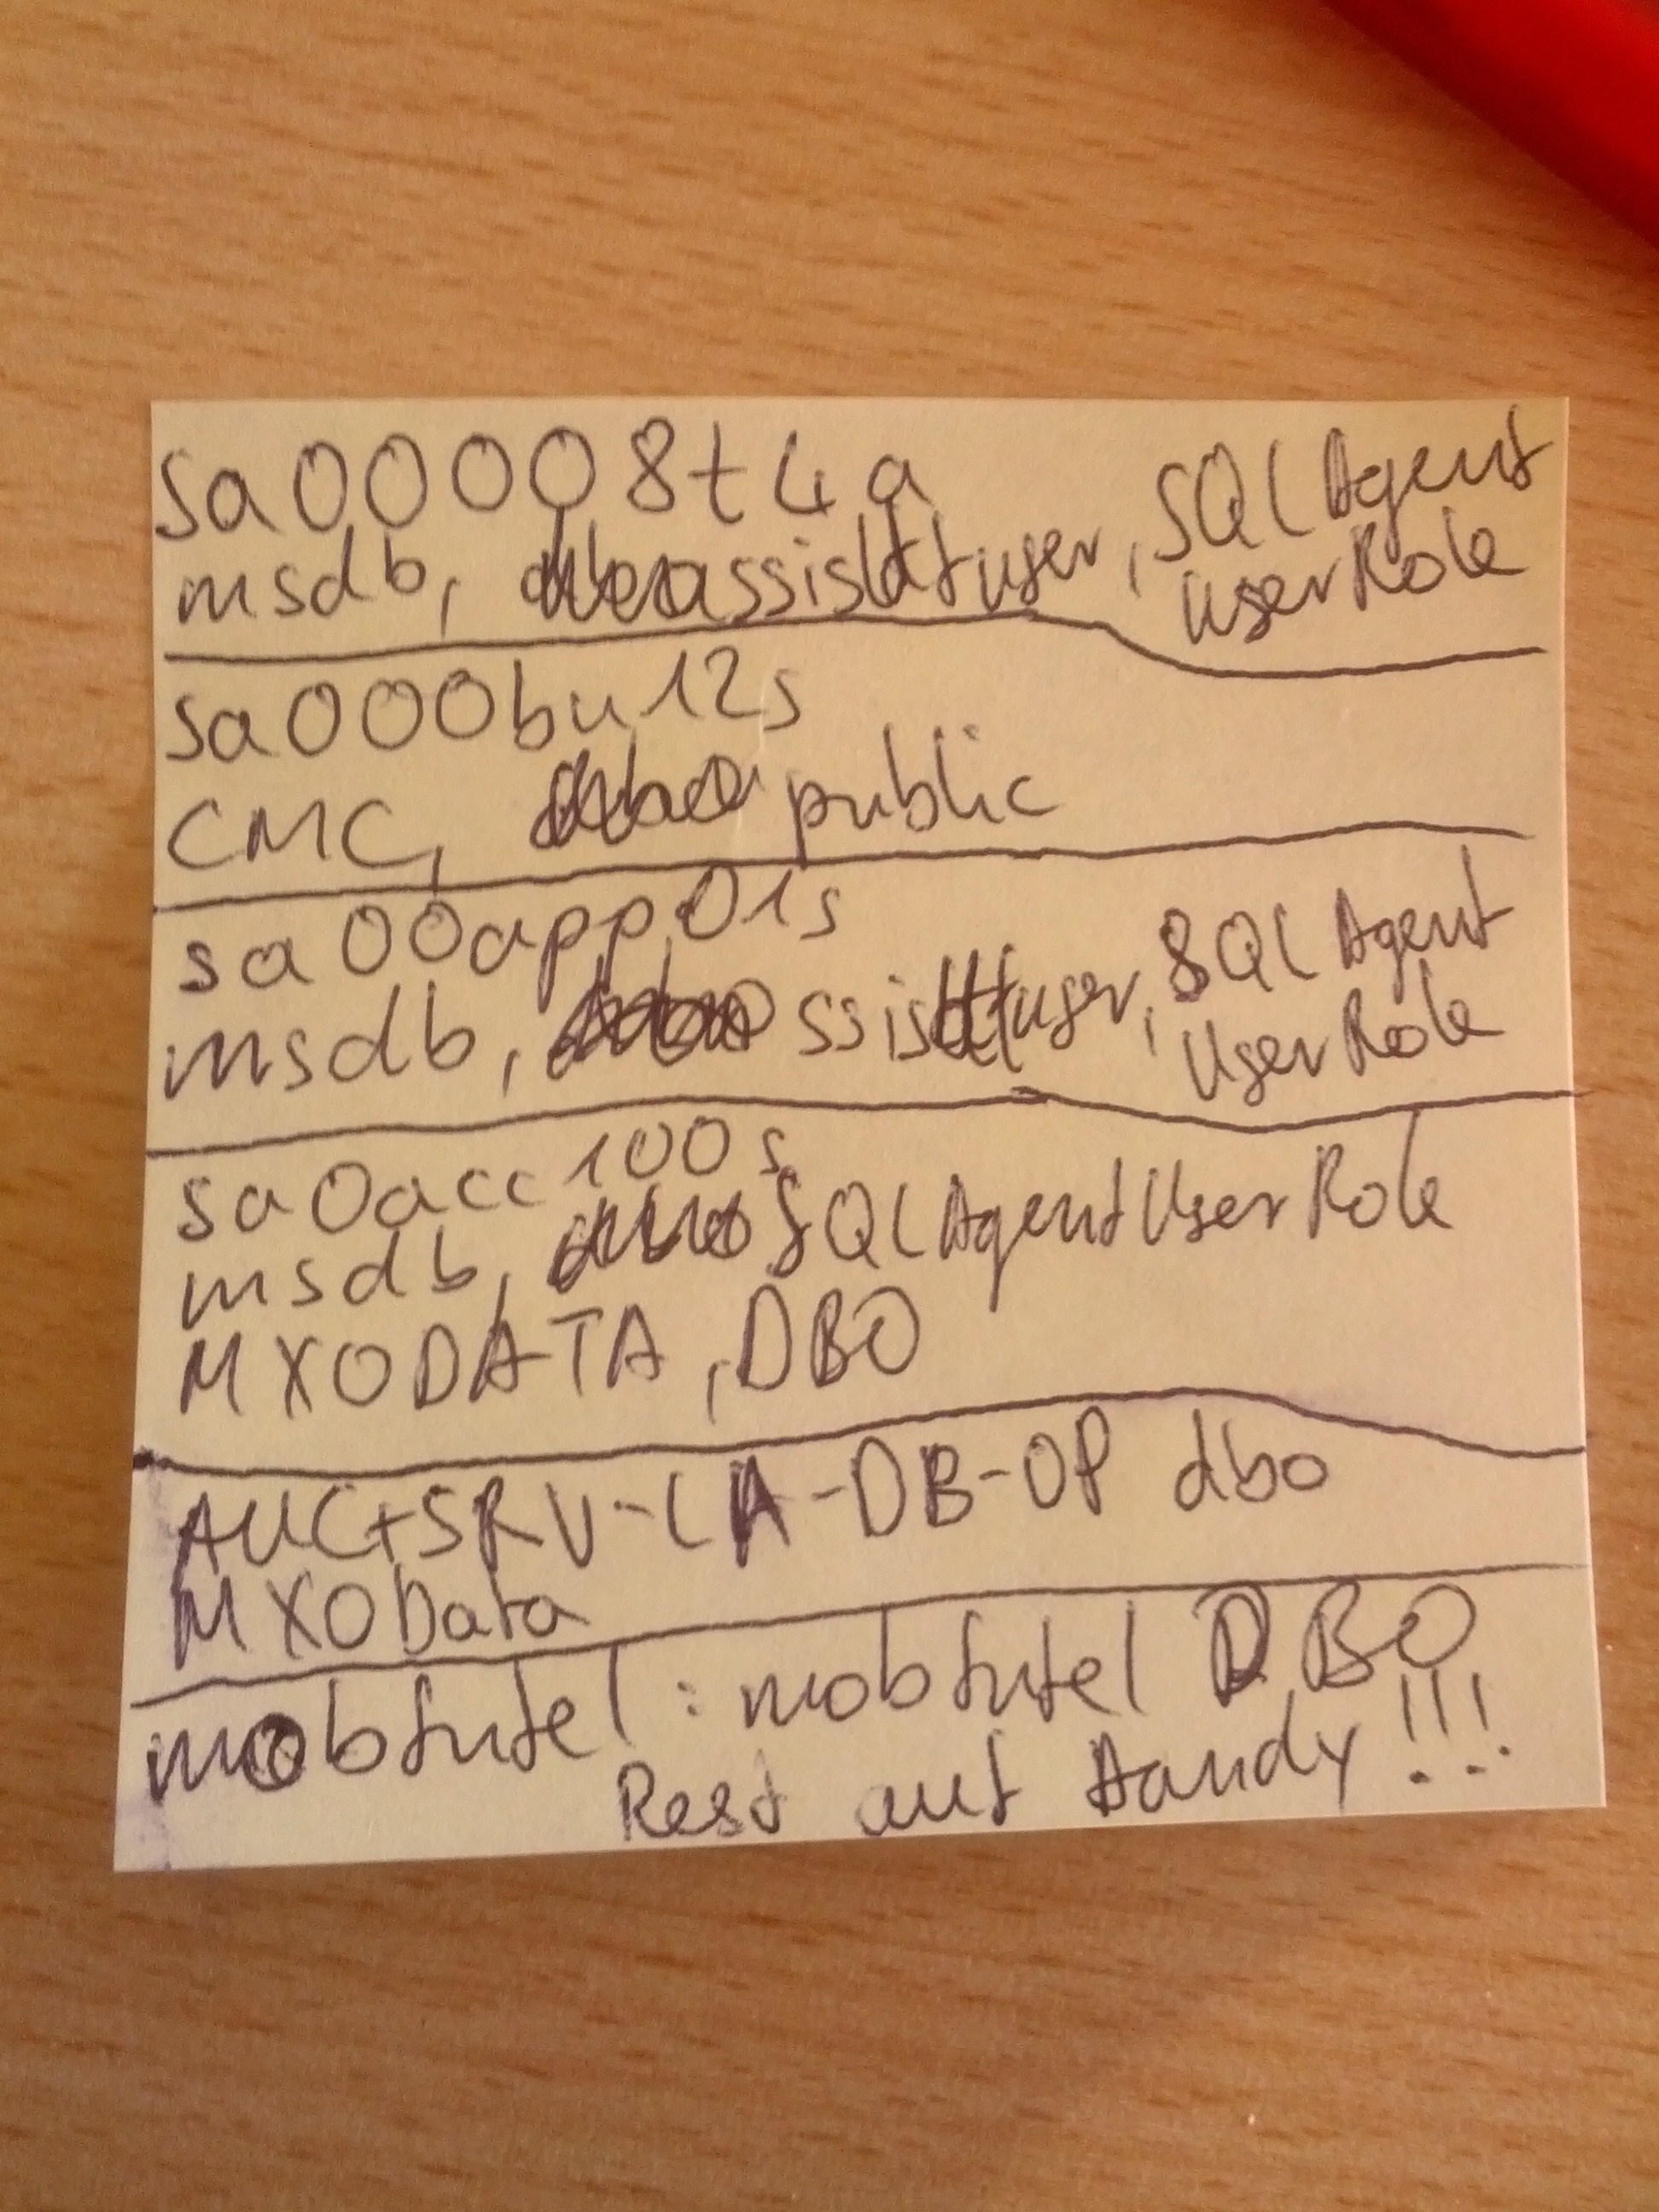 sa00008t4a
msdb, ssistuser, SQLAgent
UserRole
sa000bu12s
CMC, public
sa00app01s
msdb, ssistuser, SQLAgent
UserRole
sa0acc100s
msdb, SQLAgentUserRole
MXODATA, DBO
AUC+SRV-LA-DB-OP dbo
MXOData
mobfutel: mobfutel DBO
Rest auf Handy!!!